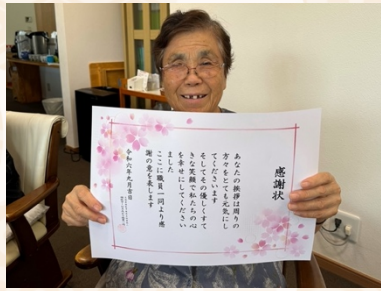 感謝状
あなたの挨拶は周りの
方々をとても元気にし
てくださいます
そしてその優しくすて
きな笑顔で私たちの心
を幸せにしてください
ました
ここに職員一同より感
謝の意を表します
令和六年九月吉日